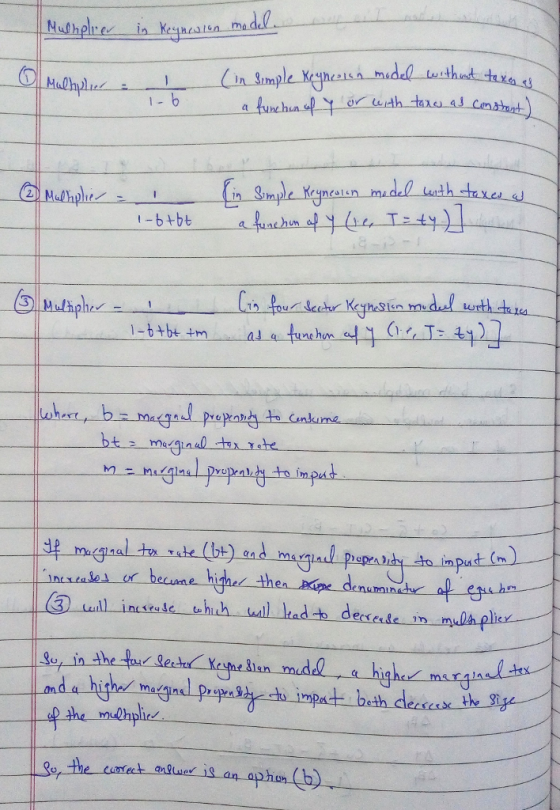 Multiplier in Keynesian model.
① Multiplier = 1 / 1-b (in simple Keynesian model without taxes as
a function of Y or with taxes as constant)
② Multiplier = 1 / 1-b+bt [in Simple Keynesian model with taxes as
a function of Y (i.e, T = ty)]
③ Multiplier = 1 / 1-b+bt+m [in four sector Keynesian model with taxes
as a function of Y (i.e, T = ty)]
Where, b = marginal propensity to consume
bt = marginal tax rate
m = marginal propensity to import.
If marginal tax rate (bt) and marginal propensity to import (m)
increases or become higher then denominator of equation
③ will increase which will lead to decrease in multiplier.
So, in the four sector Keynesian model, a higher marginal tax
and a higher marginal propensity to import both decrease the size
of the multiplier.
So, the correct answer is an option (b).